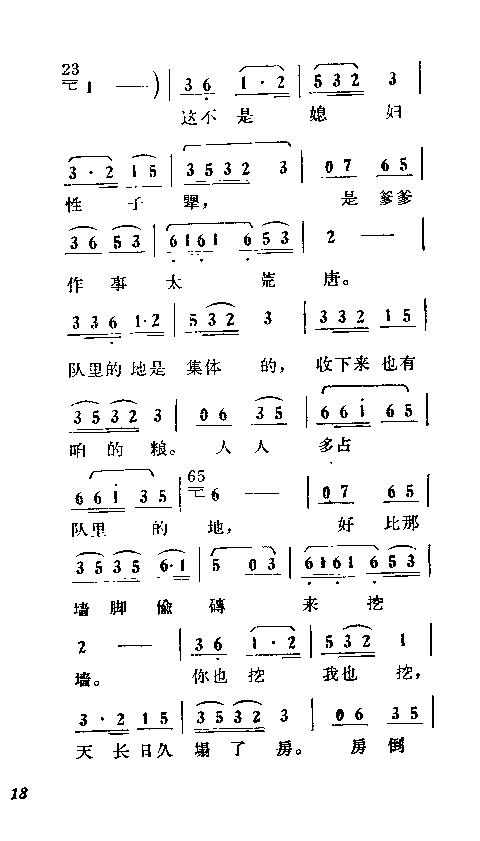 23
1 —) | 3 6 1 · 2 | 5 3 2 3 |
这不是 媳 妇
3 · 2 1 5 | 3 5 3 2 3 | 0 7 6 5 |
性 子 犟， 是爹爹
3 6 5 3 | 6 1 6 1 6 5 3 | 2 — |
作事太 荒 唐。
3 3 6 1·2 | 5 3 2 3 | 3 3 2 1 5 |
队里的地是 集体 的，收下来也有
3 5 3 2 3 | 0 6 3 5 | 6 6 i 6 5 |
咱的粮。 人人 多占
6 6 i 3 5 | 65 6 — | 0 7 6 5 |
队里 的 地， 好比那
3 5 3 5 6·1 | 5 0 3 | 6 1 6 1 6 5 3 |
墙脚偷砖 来 挖
2 — | 3 6 1 · 2 | 5 3 2 1 |
墙。 你也挖 我也挖，
3 · 2 1 5 | 3 5 3 2 3 | 0 6 3 5 |
天长日久 塌了房。 房倒
18